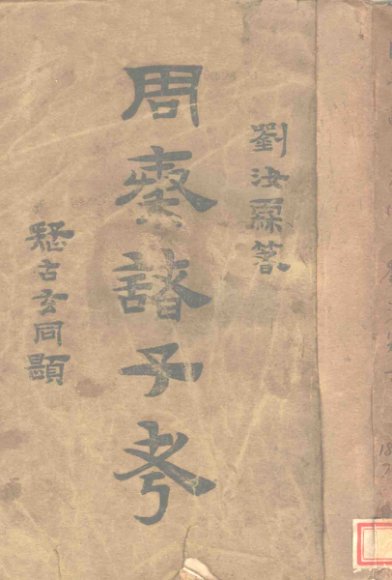 劉汝霖著
周秦諸子考
疑古玄同題